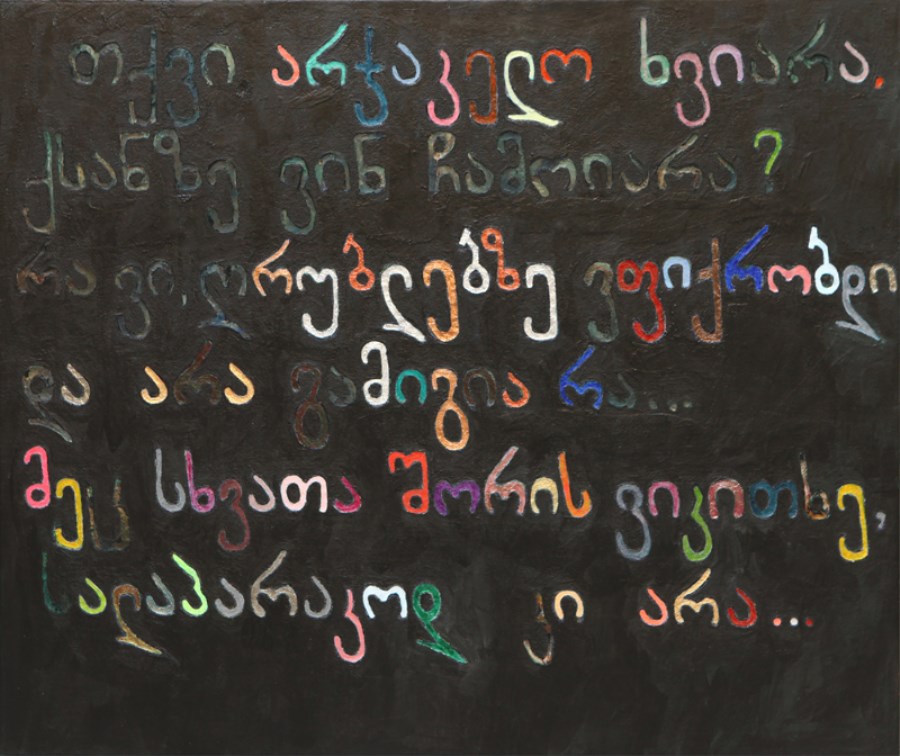 თქვი არჭაკელო ხვიარა.
ქსანზე ვინ ჩამოიარა?
რა ვი, ღრუბლებზე ვფიქრობდი
და არა გამიგია რა...
მეც სხვათა შორის ვიკითხე,
სალაპარაკოდ კი არა...